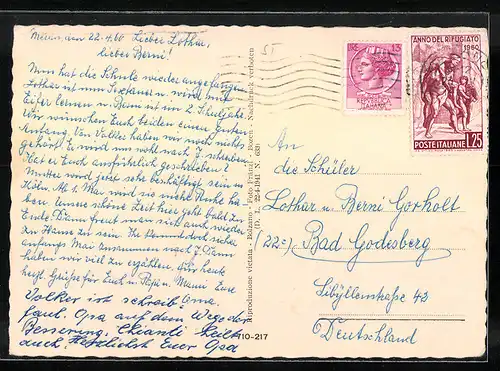 Meran, den 22.4.60 Lieber Lothar,
lieber Berni!
Nun hat die Schule wieder angefangen
Lothar ist nun Sextaner u. wird mit
Eifer lernen u. Berni ist im 2. Schuljahr
Wir wünschen Euch beiden einen guten
Anfang. Von Volker haben wir noch nichts
gehört. Er wird uns wohl nach J. schreiben.
Hat er Euch ausführlich geschrieben?
Mutter wird jetzt sehr beschäftigt sein in
Köln. Ab 1. Mai wird sie auch Ruhe
haben. Unsre schöne Zeit hier geht bald zu
Ende. Dann freut man sich auch wieder
zu Hause zu sein. Ihr kommt doch sicher
anfangs Mai zusammen nach J. Dann
haben wir viel zu erzählen. Für heute
herzl. Grüße für Euch u. Papi u. Mami Eure
Oma.
Volker ist schreib
faul. Opa auf dem Wege der
Besserung. Chianti heilt
auch. Herzlichst Euer Opa
51
Riproduzione vietata - Bolzano - Foto Fränzl - Bozen - Nachdruck verboten
(D. L. 22-4-1941 N. 633)
110-217
LIRE 15
REPUBBLICA
ITALIANA
ANNO DEL RIFUGIATO
1960
POSTE ITALIANE L.25
An
die Schüler
Lothar u. Berni Gorholt
(22c) Bad Godesberg
Sibyllenstraße 42
Deutschland